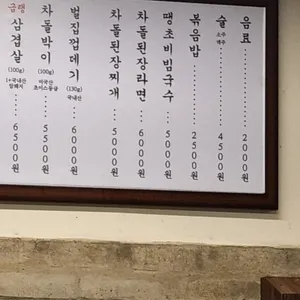 급랭 삼겹살 (100g) 1+국내산 암퇘지 ····· 6500원
차돌박이 (100g) 미국산 초이스등급 ····· 5500원
벌집껍데기 (130g) 국내산 ····· 6000원
차돌된장찌개 ····· 5000원
차돌된장라면 ····· 6000원
땡초비빔국수 ····· 5000원
볶음밥 ····· 2500원
술 소주 맥주 ····· 4500원
음료 ····· 2000원